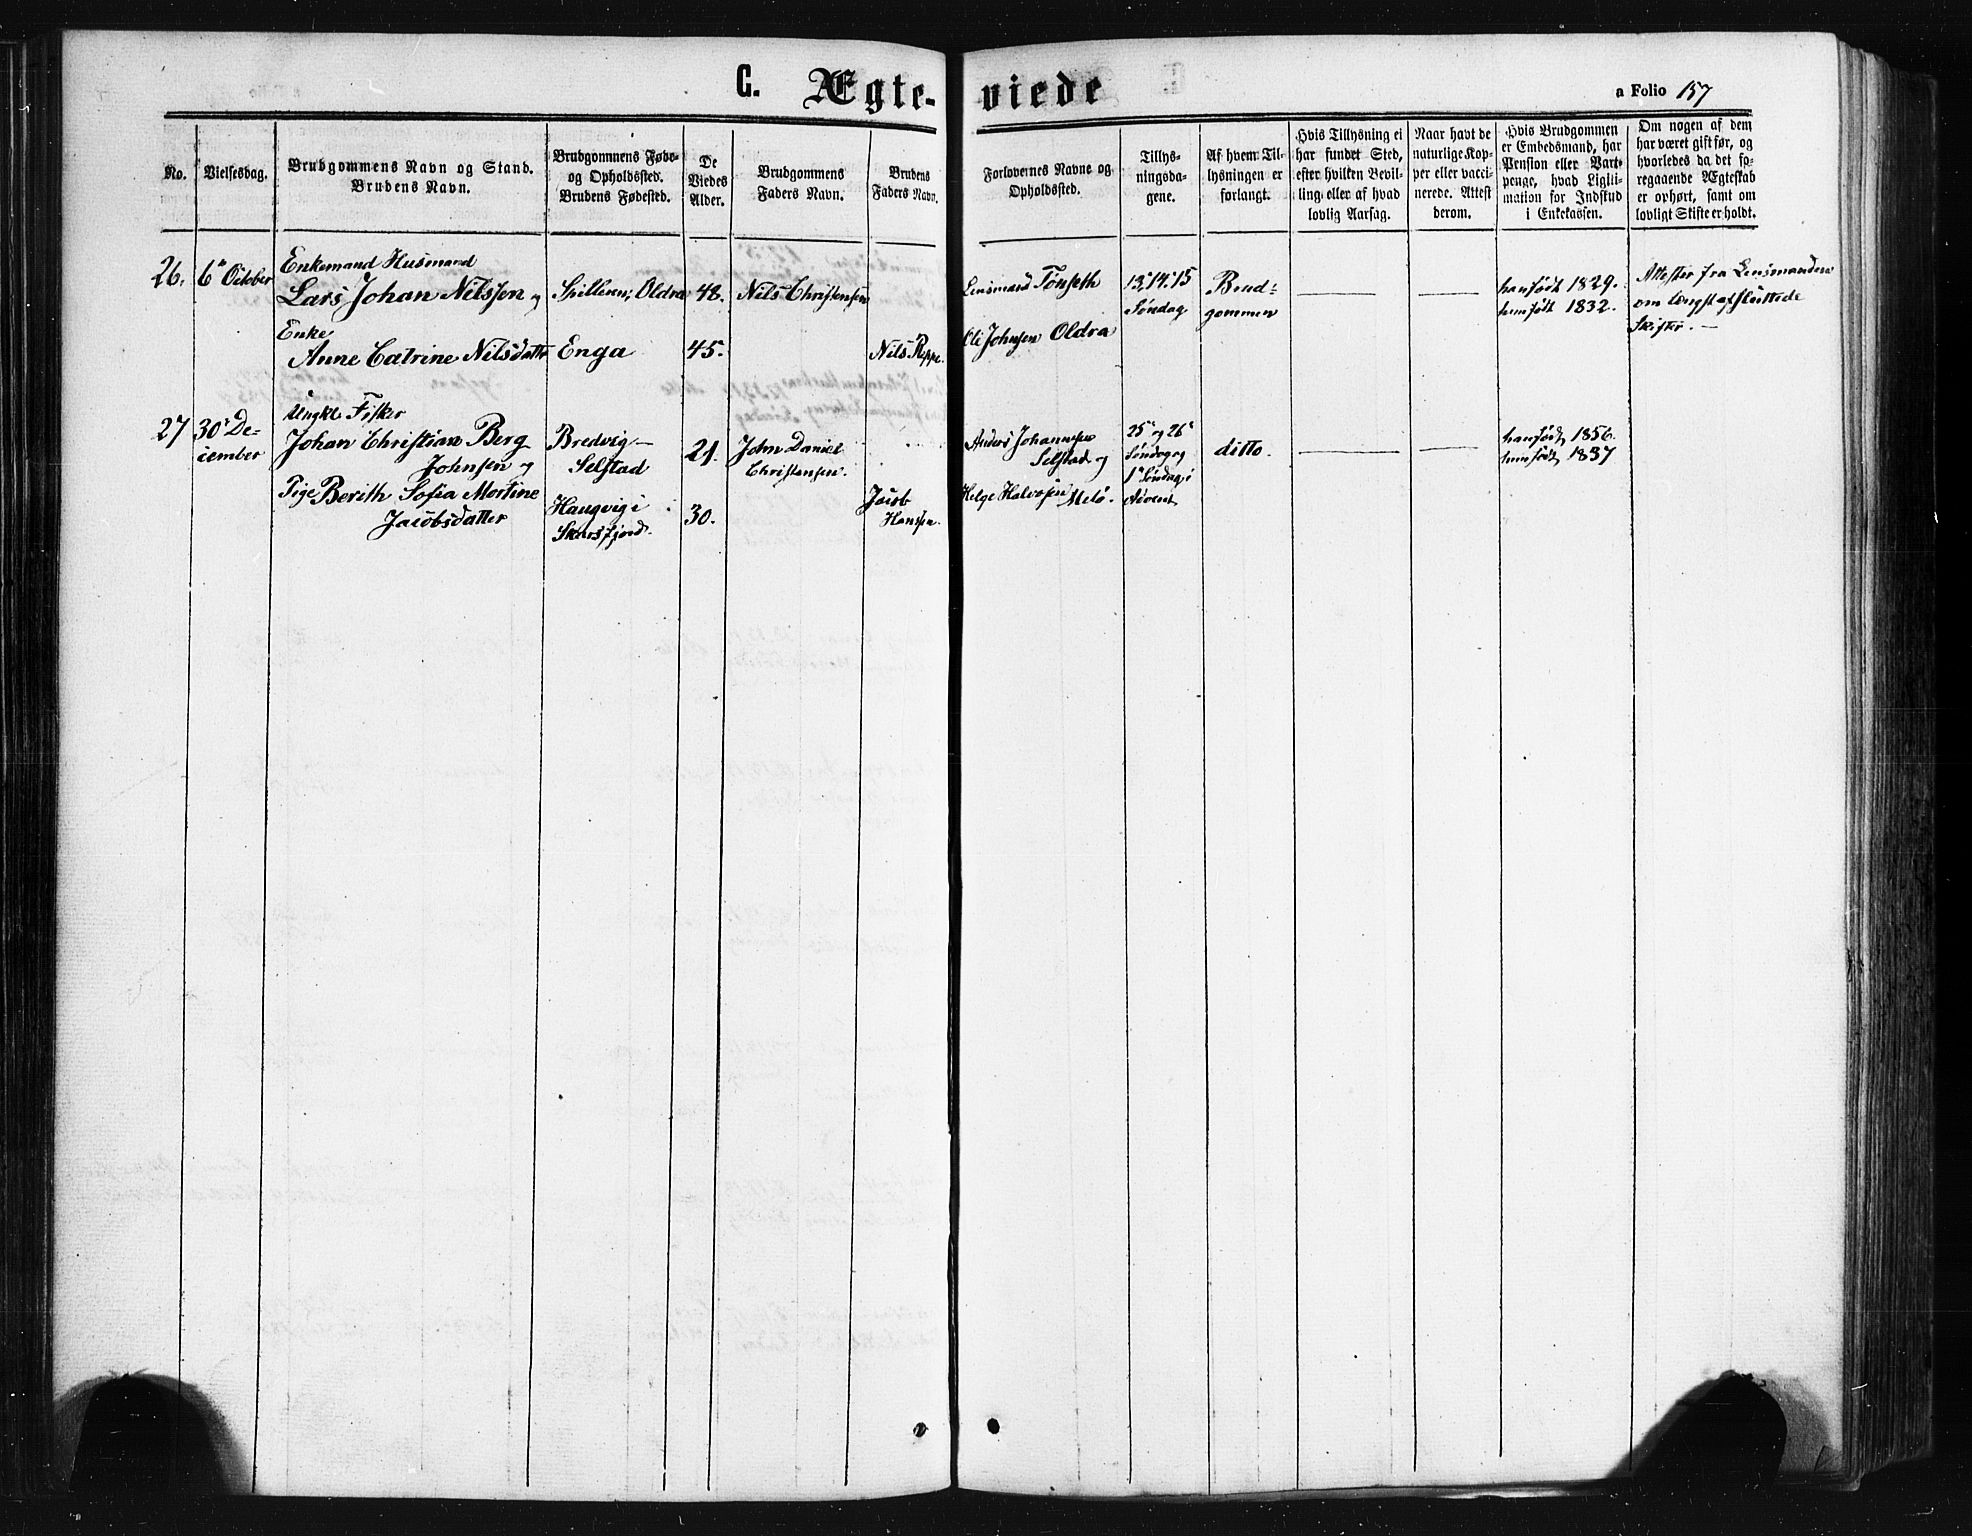 G. Ægte-viede
a Folio 157
No.
Vielsesdag.
Brudgommens Navn og Stand.
Brudens Navn.
Brudgommens Føde-
og Opholdssted.
Brudens Fødested.
De
Viedes
Alder.
Brudgommens
Faders Navn.
Brudens
Faders Navn.
Forlovernes Navne og
Opholdssted.
Tillys-
ningsda-
gene.
Af hvem Til-
lysningen er
forlangt.
Hvis Tillysning ei
har fundet Sted,
efter hvilken Bevil-
ling eller af hvad
lovlig Aarsag.
Naar havt de
naturlige Kop-
per eller vacci-
nerede. Attest
derom.
Hvis Brudgommen
er Embedsmand, har
Pension eller Vart-
penge, hvad Ligiti-
mation for Indskud
i Enkekassen.
Om nogen af dem
har været gift før, og
hvorledes da det fo-
regaaende Ægteskab
er ophørt, samt om
lovligt Skifte er holdt.
26.
6te October
Enkemand Husmand
Lars Johan Nilssen og
Enke
Anne Catrine Nilsdatter
Oldra
Enga
48.
45.
Nils Christensen
Nils Reppe.
Lensmand Tønseth
Ole Johnsen Oldra
13, 14, 15
Søndag
Brud-
gommen
han født 1829.
hun født 1832.
Attester fra Lensmanden
om længst afsluttede
Skifter. —
27
30' De-
cember
Ungkl. Fisker
Johan Christian Berg
Johnsen og
Pige Berith Sofia Mortine
Jacobsdatter
Bredvig —
Selstad
Haugvig i
Skarsfjord.
21.
30.
John Daniel
Christensen.
Jacob
Hansen.
Anders Johannesen
Selstad og
Helge Halvorsen Melø.
25' og 26'
Søndag og
1' Søndag i
Advent
ditto.
han født 1856.
hun født 1837